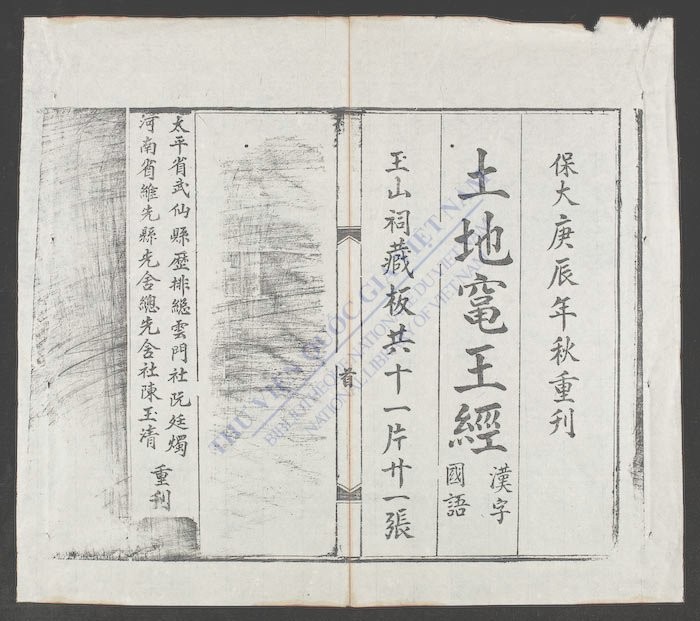 保大庚辰年秋重刊
土地竃王經 漢字 國語
玉山祠藏板共十一片廿一張
首
太平省武仙縣歷排總雲門社阮廷燭
河南省維先縣先舍總先舍社陳玉清 重刊
THƯ VIỆN QUỐC GIA VIỆT NAM
BIBLIOTHÈQUE NATIONALE DU VIETNAM
NATIONAL LIBRARY OF VIETNAM